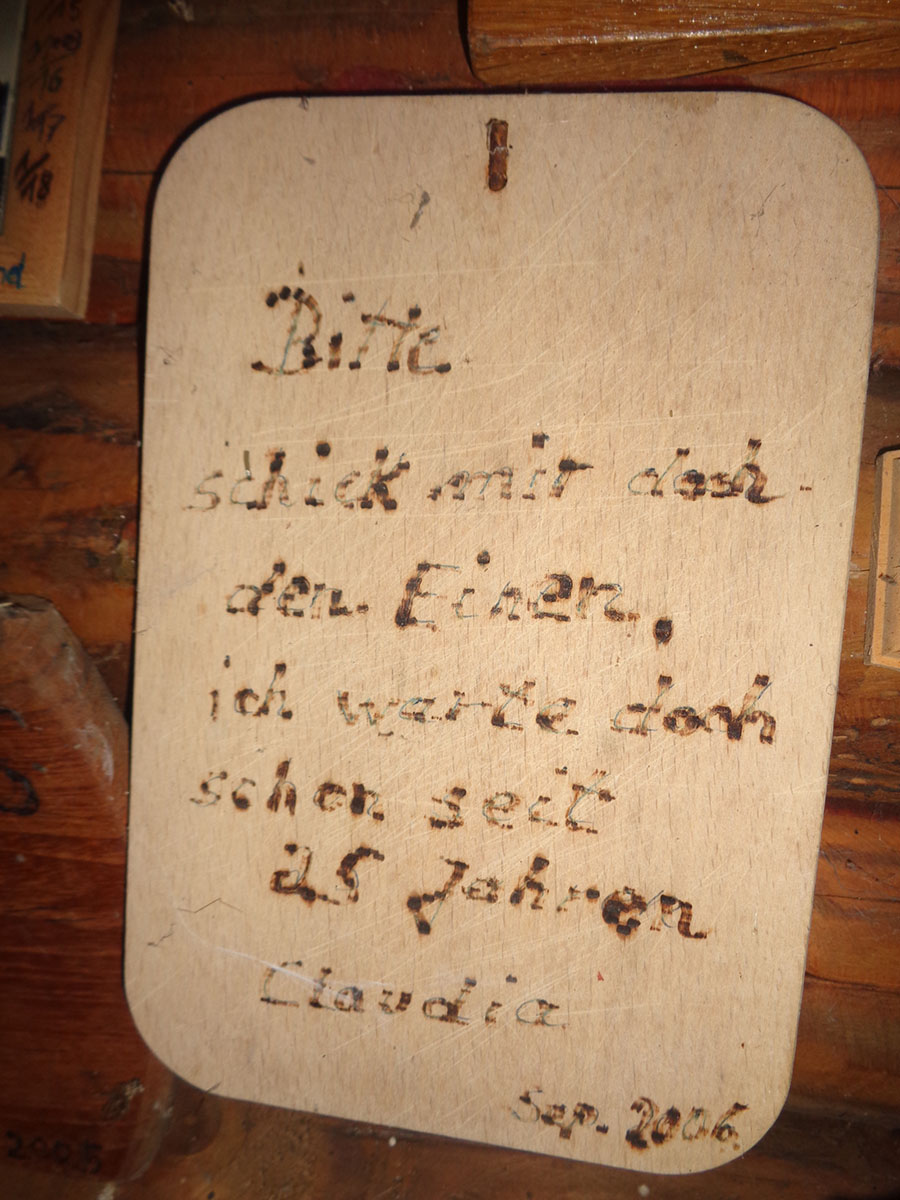 Bitte
schick mir doch
den Einen,
ich warte doch
schon seit
25 Jahren
Claudia
Sep. 2006
16
/17
1/18
nd
2005